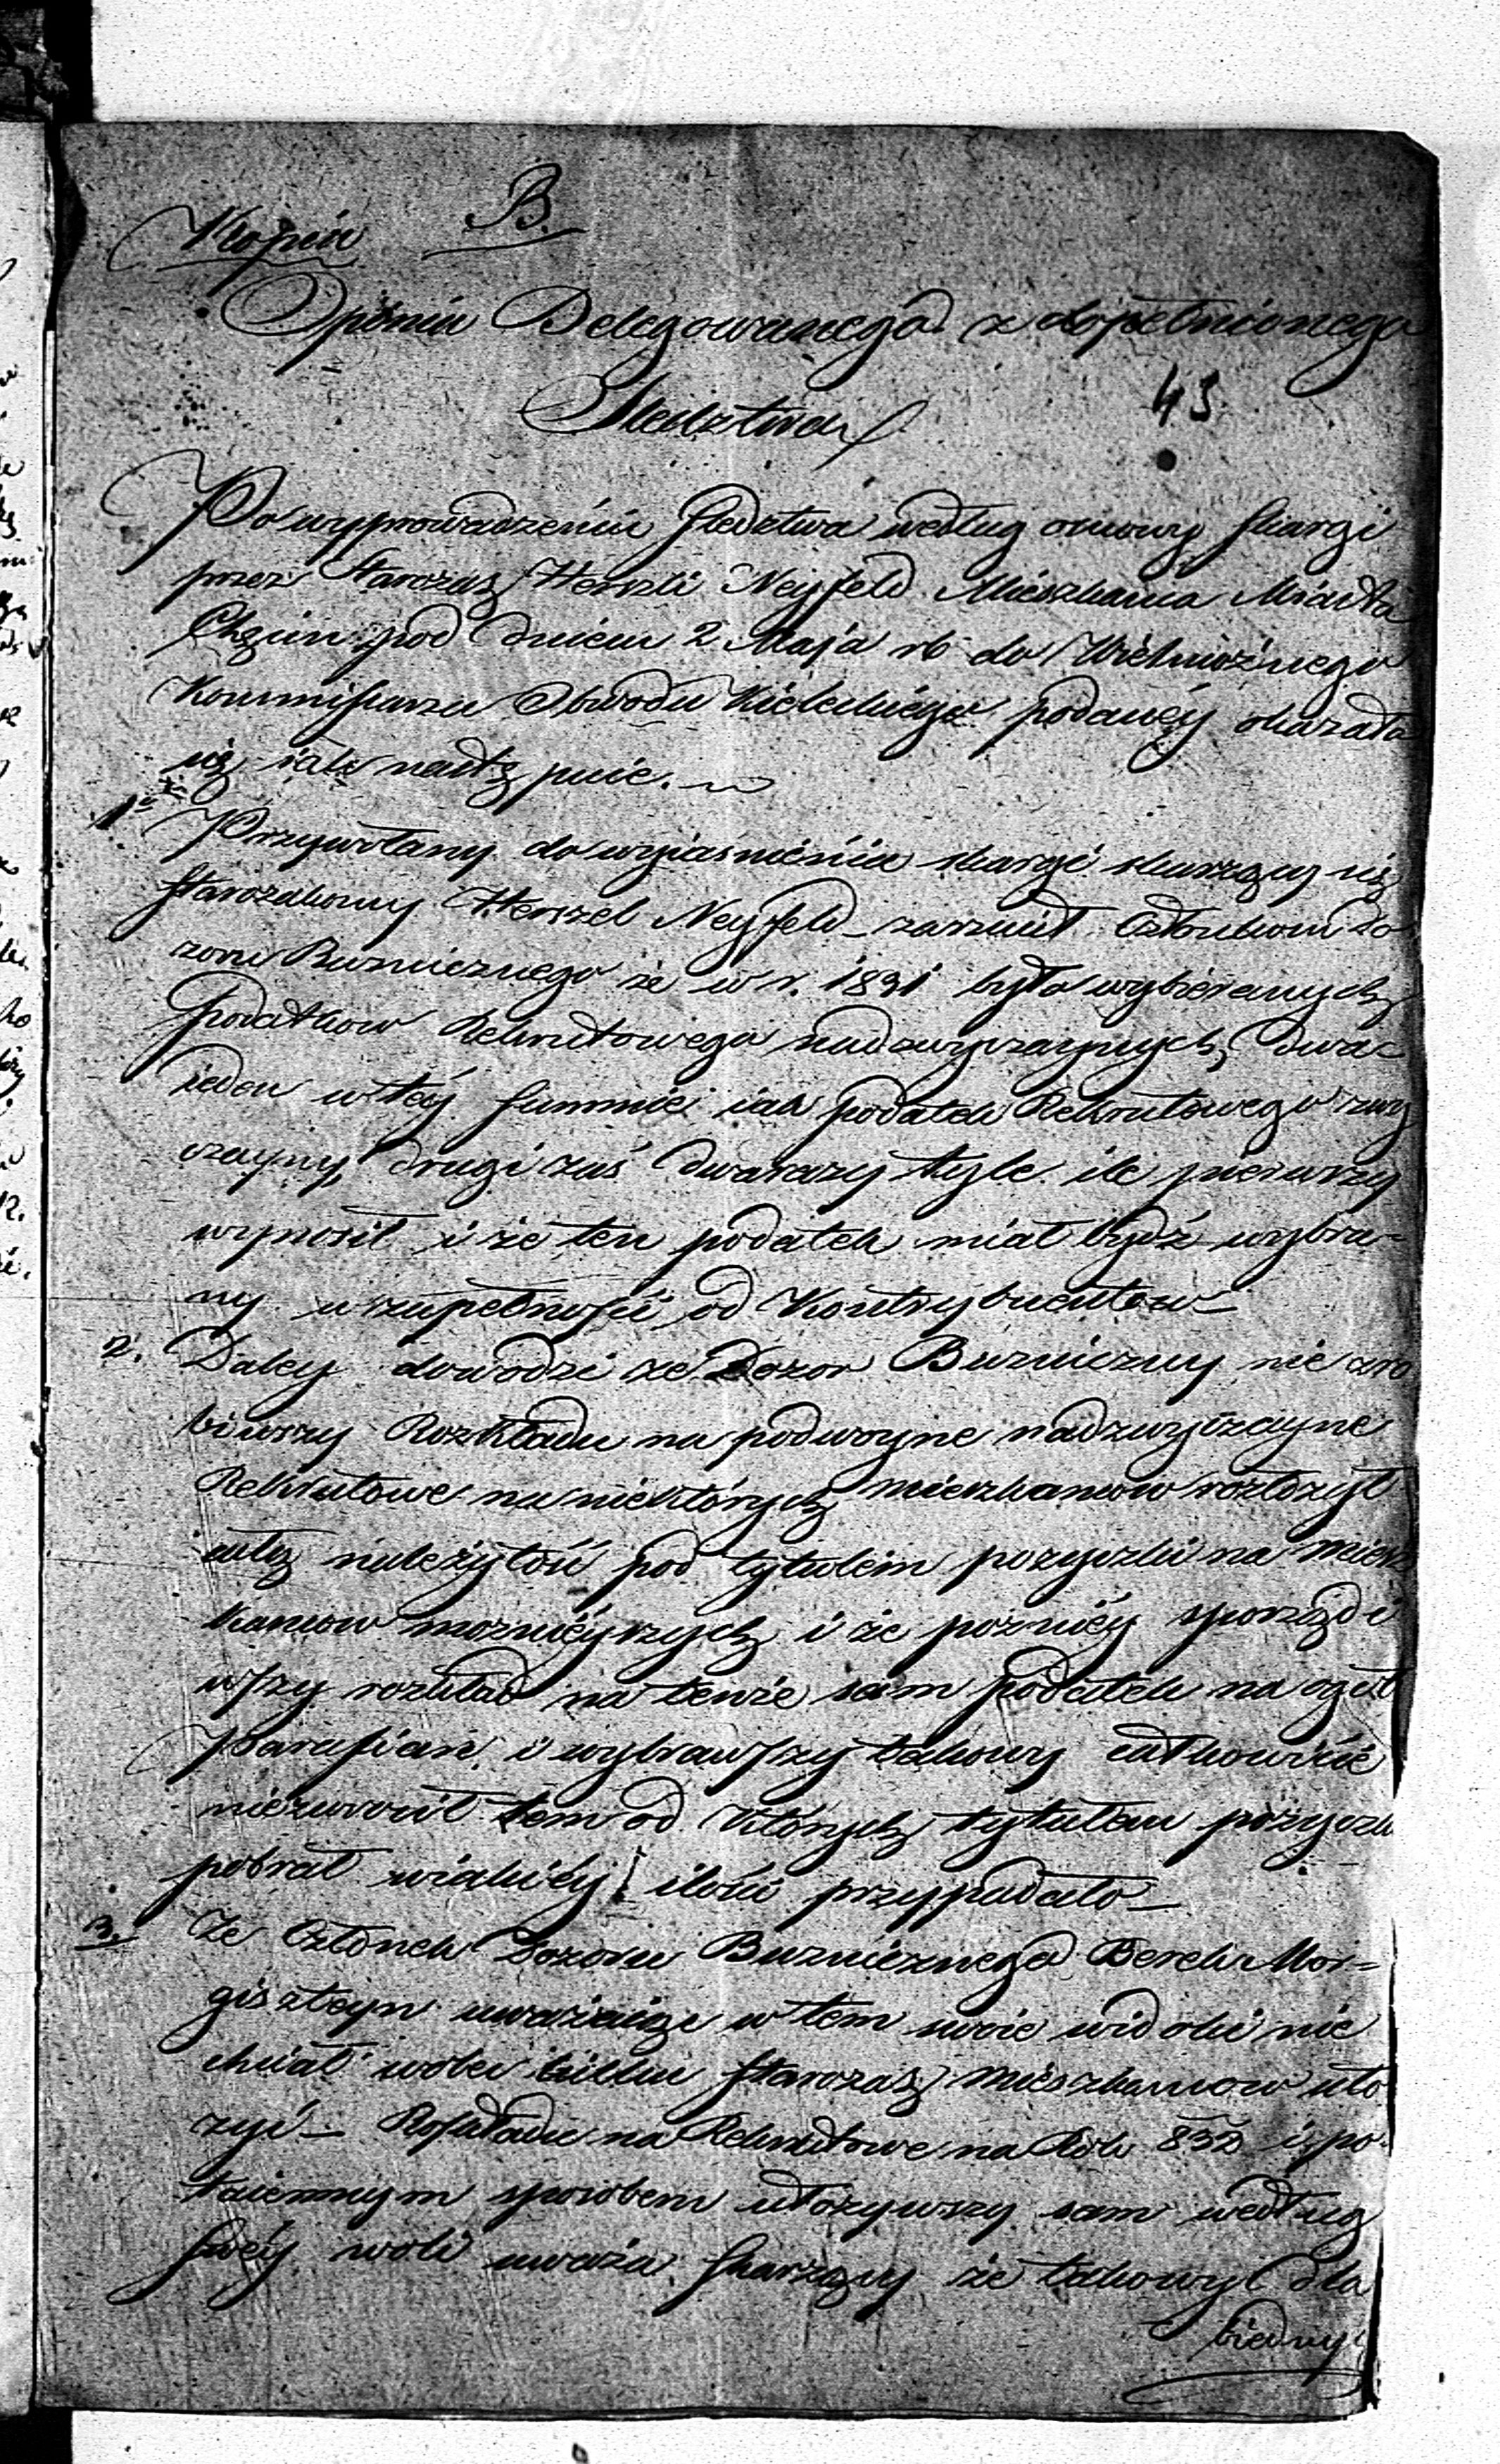 B.
Kopia
Opinia Delegowanego z dopełnionego
43
Sledztwa
Po wyprowadzeniu sledztwa według osnowy skargi
przez Starozak Herszli Neyfeld Mieszkańca Miasta
Chęcin pod dniem 2 Maja rb do Wielmożnego
Kommissarza Obwodu Kieleckiego podaney okazało
się iak następuie.
1o Przywołany do wyiasnienia skargi skarżący się
starozakonny Herszel Neyfeld zarzucił Członkom Do
zoru Bużnicznego że w r. 1831 było wybieranych
podatkow Rekrutowego nadzwyczaynych dwa
ieden w téy summie iak podatek Rekrutowego zwy
czayny drugi zaś dwarazy tyle ile pierwszy
wynosił i że ten podatek miał bydź wybra-
ny w zupełności od Kontrybuentow
2. Daley dowodzi że Dozor Buzniczny nie zro
biwszy Rozkładu na podwoyne nadzwyczayne
Rekrutowe na niektórych mieszkancow rozłożył
całą należytość pod tytułem pozyczki na miesz
kancow moznieyszych i że pozniéy sporządzi
wszy rozkład na tenże sam podatek na ogół
Parafian i wybrawszy takowy całkowicie
niezwrócił tem od których tytułem pożyczki
pobrał iakiéy ilości przypadało
3. Ze Członek Dozoru Buznicznego Berek Mor-
giszteyn uważaiąc w tem swoie widoki nie
chciał wobec kilku starozak mieszkancow uło
żyć Roskładu na Rekrutowe na Rok 832 i po-
taiemnym sposobem ułożywszy sam według
swéy woli uważa skarżący że takowy dla
biednych